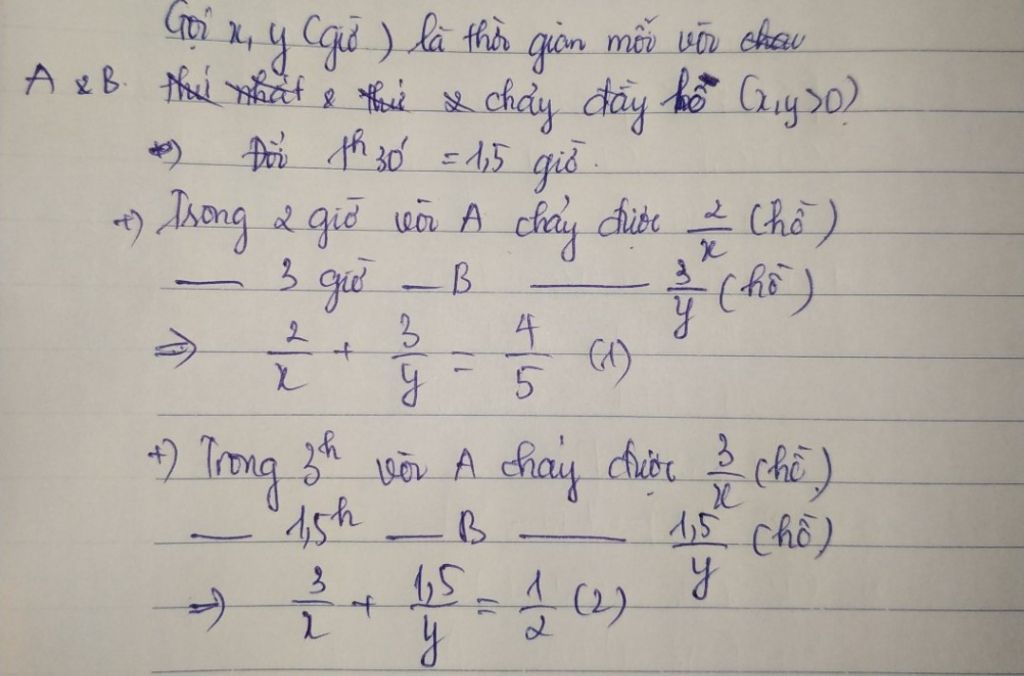 Gọi x, y (giờ) là thời gian mỗi vòi chau
A & B. thứ nhất & thứ 2 chảy đầy hồ (x,y>0)
+) Đổi 1h30' = 1,5 giờ.
+) Trong 2 giờ vòi A chảy được 2/x (hồ)
— 3 giờ — B — 3/y (hồ)
=> 2/x + 3/y = 4/5 (1)
+) Trong 3h vòi A chảy được 3/x (hồ)
— 1,5h — B — 1,5/y (hồ)
=> 3/x + 1,5/y = 1/2 (2)